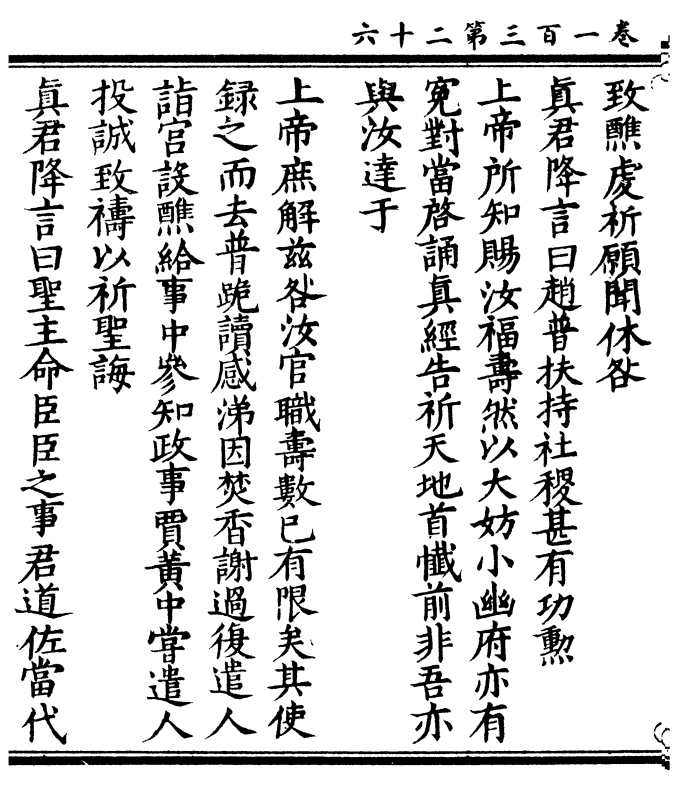 卷一百三第二十六
致醮處祈願聞休咎
眞君降言曰趙普扶持社稷甚有功勲
上帝所知賜汝福壽然以大妨小幽府亦有
寃對當啓誦眞經告祈天地首懺前非吾亦
與汝達于
上帝庶解兹咎汝官職壽數已有限矣其使
録之而去普跪讀感涕因焚香謝過復遣人
詣宫設醮給事中參知政事賈黄中嘗遣人
投誠致禱以祈聖誨
眞君降言曰聖主命臣臣之事君道佐當代